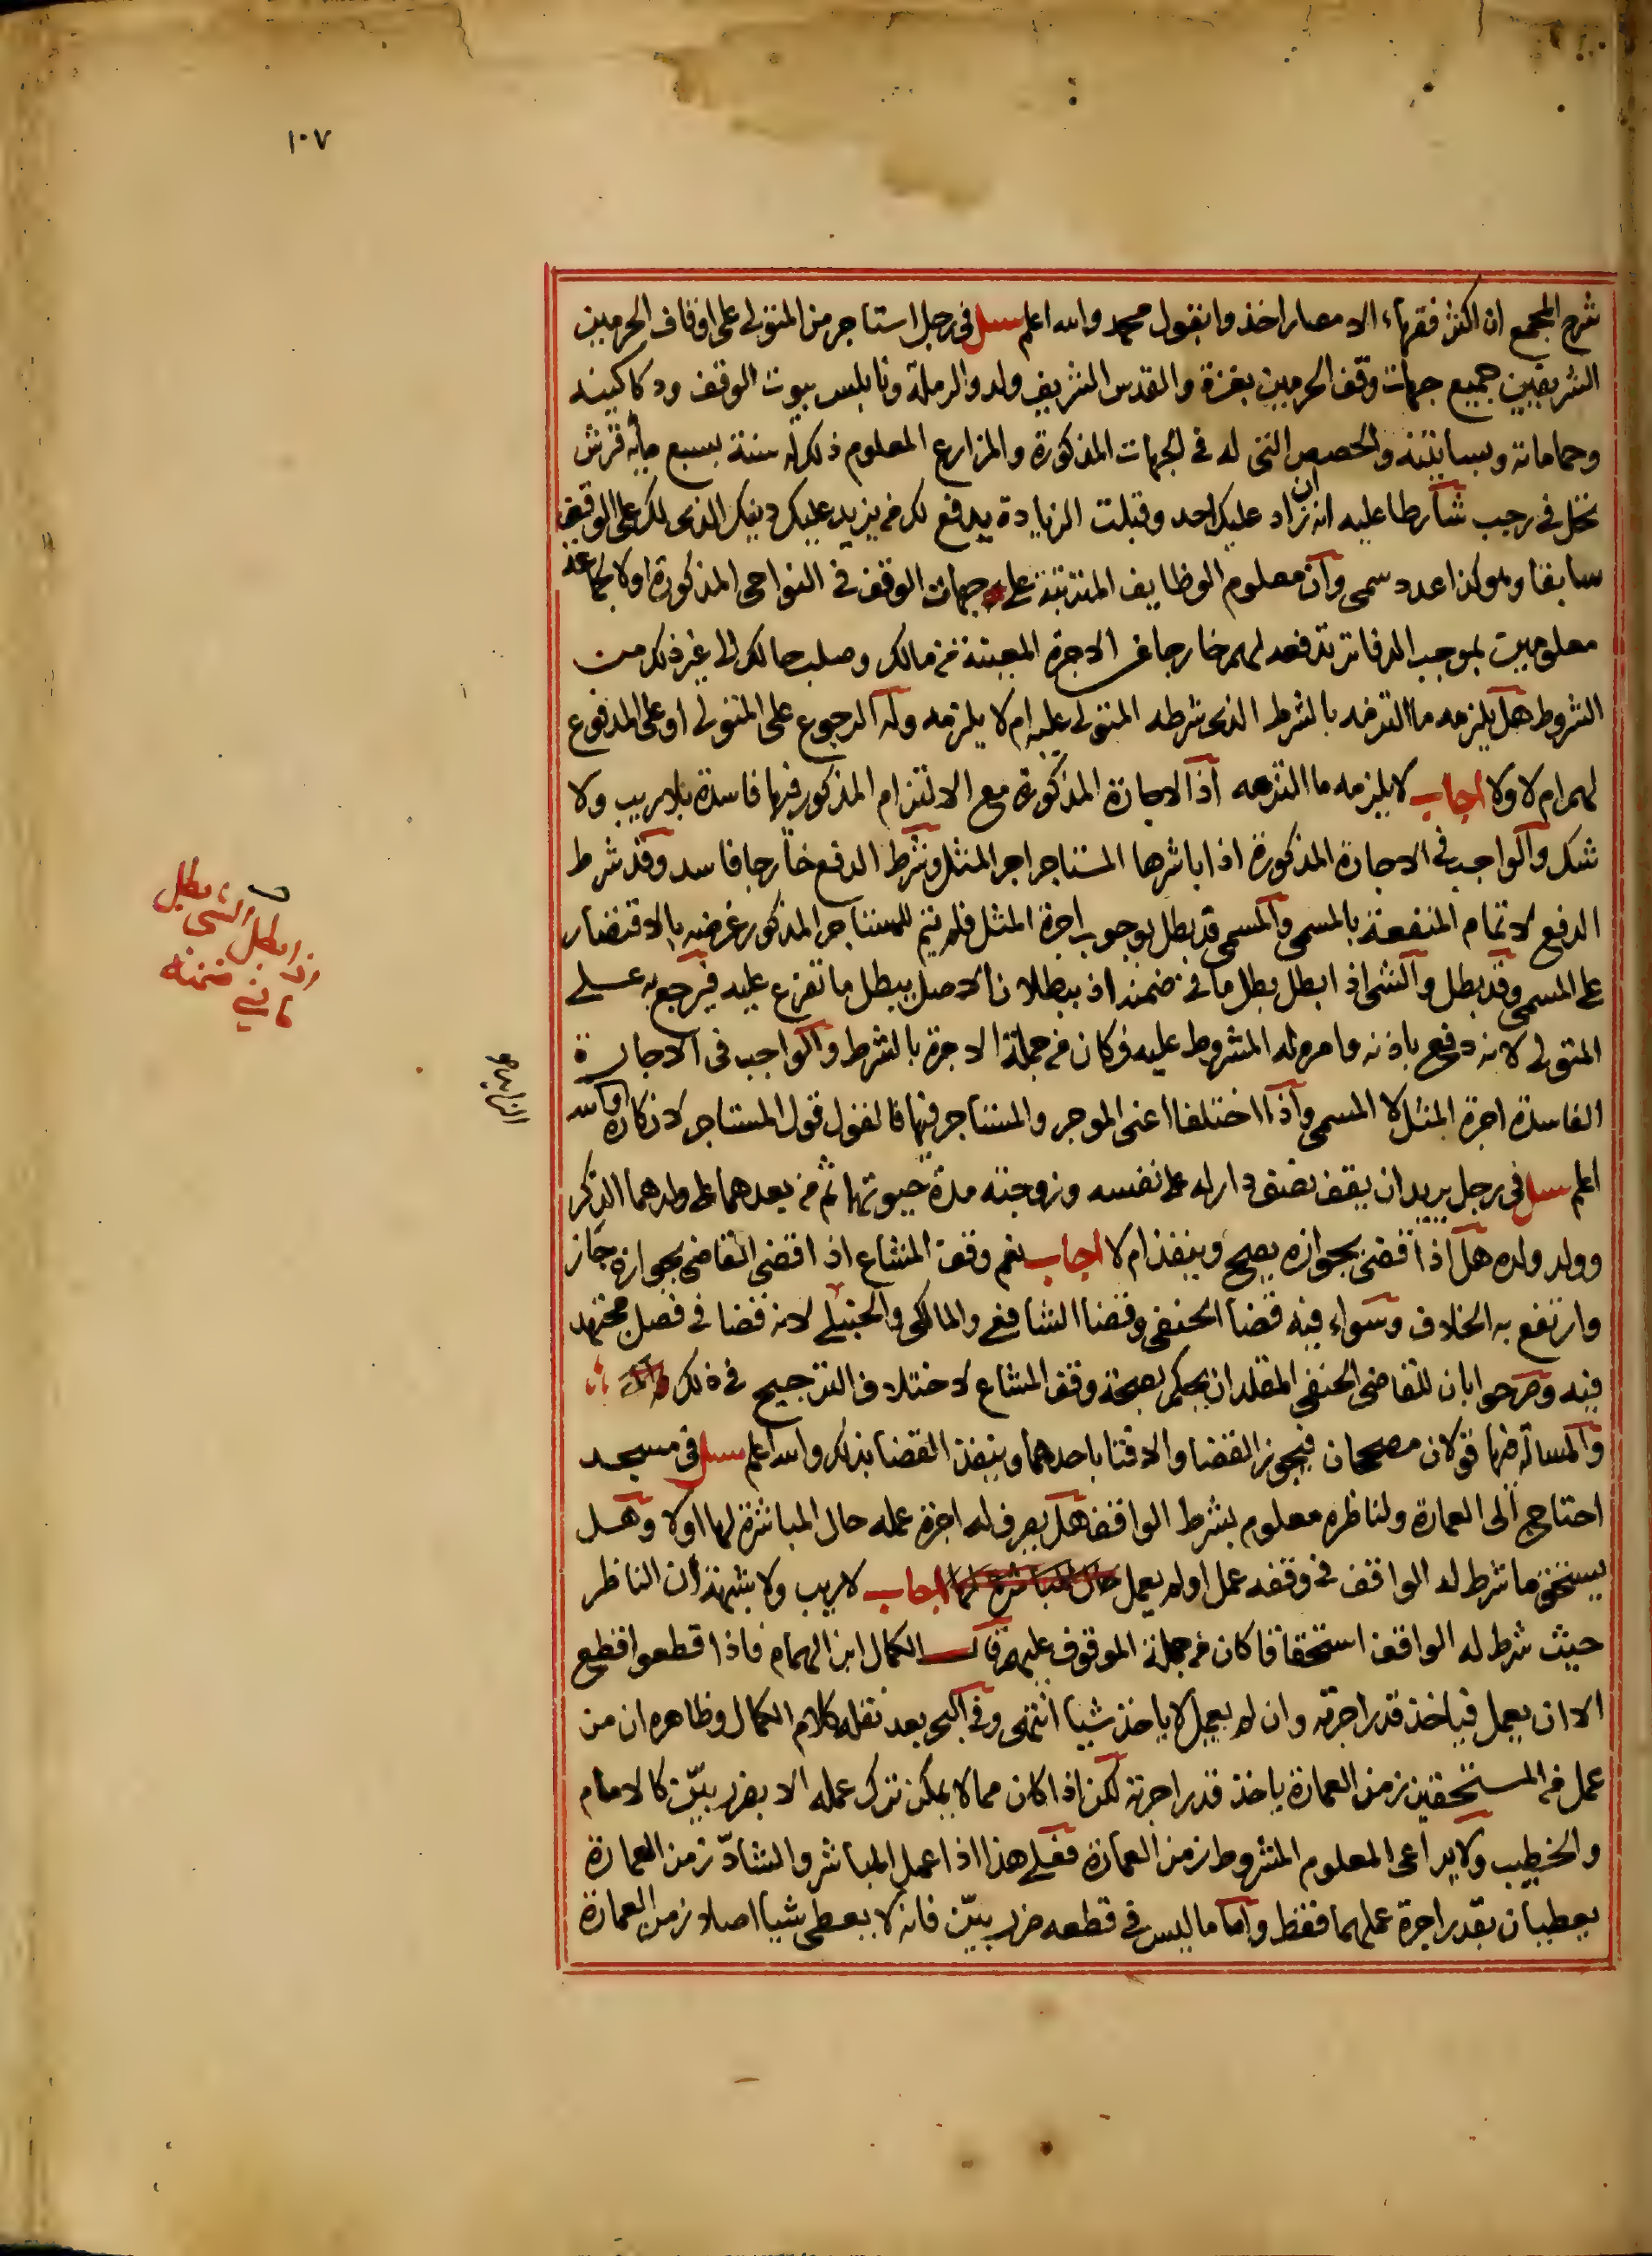 ١٠٧
شرح المجمع ان اكثر فقهاء الامصار اخذوا بقول محمد والله اعلم سئل في رجل استاجر من المتولي على اوقاف الحرمين
الشريفين جميع جهات وقف الحرمين بغزة والقدس الشريف ولد والرملة ونابلس بيوت الوقف ودكاكينه
وحماماته وبساتينه والحصص التي له في الجهات المذكورة والمزارع المعلوم ذلك له سنة بسبع مائة قرش
تحل في رجب شارطا عليه انه ان زاد عليك احد وقبلت الزيادة يدفع لك من يزيد عليك دينك الذي لك على الوقف
سابقا وهو كذا عدد سمي وان معلوم الوظايف المترتبة على جهات الوقف في النواحي المذكورة اولا لجماعة
معلومين بموجب الدفاتر تدفعه لهم خارجا عن الاجرة المعينة من مالك وصلب حالك الى غير ذلك من
الشروط هل يلزمه ما التزمه بالشرط الذي شرطه المتولي عليه ام لا يلزمه وله الرجوع على المتولي او على المدفوع
لهم ام لا ولا اجاب لا يلزمه ما التزمه اذ الاجارة المذكورة مع الالتزام المذكور فيها فاسدة بلا ريب ولا
شك والواجب في الاجارة المذكورة اذا باشرها المستاجر اجر المثل وشرط الدفع خارجا فاسد وقد شرط
الدفع لاتمام المنفعة بالمسمى والمسمى قد بطل بوجوب اجرة المثل فلم يتم للمستاجر المذكور غرضه بالاقتضار
على المسمى وقد بطل والشى اذا بطل بطل ما في ضمنه اذ ببطلان الاصل يبطل ما تفرع عليه فيرجع به على
المتولي لانه دفع باذنه وامره له المشروط عليه وكان من جملة الاجرة بالشرط والواجب في الاجارة
الفاسدة اجرة المثل لا المسمى واذا اختلفا اعنى الموجر والمستاجر فيها فالقول قول المستاجر لانكاره والله
اعلم سئل في رجل يريد ان يقف نصف دار له على نفسه وزوجته مدة حيوتهما ثم من بعدهما على ولدهما الذكر
وولد ولده هل اذا قضى بجوازه يصح وينفذ ام لا اجاب نعم وقف المشاع اذا قضى القاضي بجوازه جاز
وارتفع به الخلاف وسواء فيه قضا الحنفي وقضا الشافعي والمالكي والحنبلي لانه قضا في فصل مجتهد
فيه وصرحوا بان للقاضي الحنفي المقلد ان يحكم بصحة وقف المشاع لاختلاف الترجيح في ذلك
والمسالة فيها قولان مصححان فيجوز القضا والافتا باحدهما وينفذ القضا بذلك والله اعلم سئل في مسجد
احتاج الى العمارة ولناظره معلوم بشرط الواقف هل يصرف له اجرة عمله حال المباشرة لها اولا وهل
يستحق ما شرط له الواقف في وقفه عمل او لم يعمل حال المباشرة لها اجاب لا ريب ولا شبهة ان الناظر
حيث شرط له الواقف استحقاقا كان من جملة الموقوف عليهم قال الكمال ابن الهمام فاذا قطعوا قطع
الا ان يعمل فياخذ قدر اجرته وان لم يعمل لا ياخذ شيا انتهى وفي البحر بعد نقله كلام الكمال وظاهره ان من
عمل من المستحقين زمن العمارة ياخذ قدر اجرته لكن اذا كان مما لا يمكن ترك عمله الا بضرر بيّن كالامام
والخطيب ولا يراعى المعلوم المشروط زمن العمارة فعلى هذا اذا عمل المباشر والشادّ زمن العمارة
يعطيان بقدر اجرة عملهما فقط واما ما ليس في قطعه ضرر بيّن فانه لا يعطى شيا اصلا زمن العمارة
الشى بطل
اذا بطل
ما في ضمنه